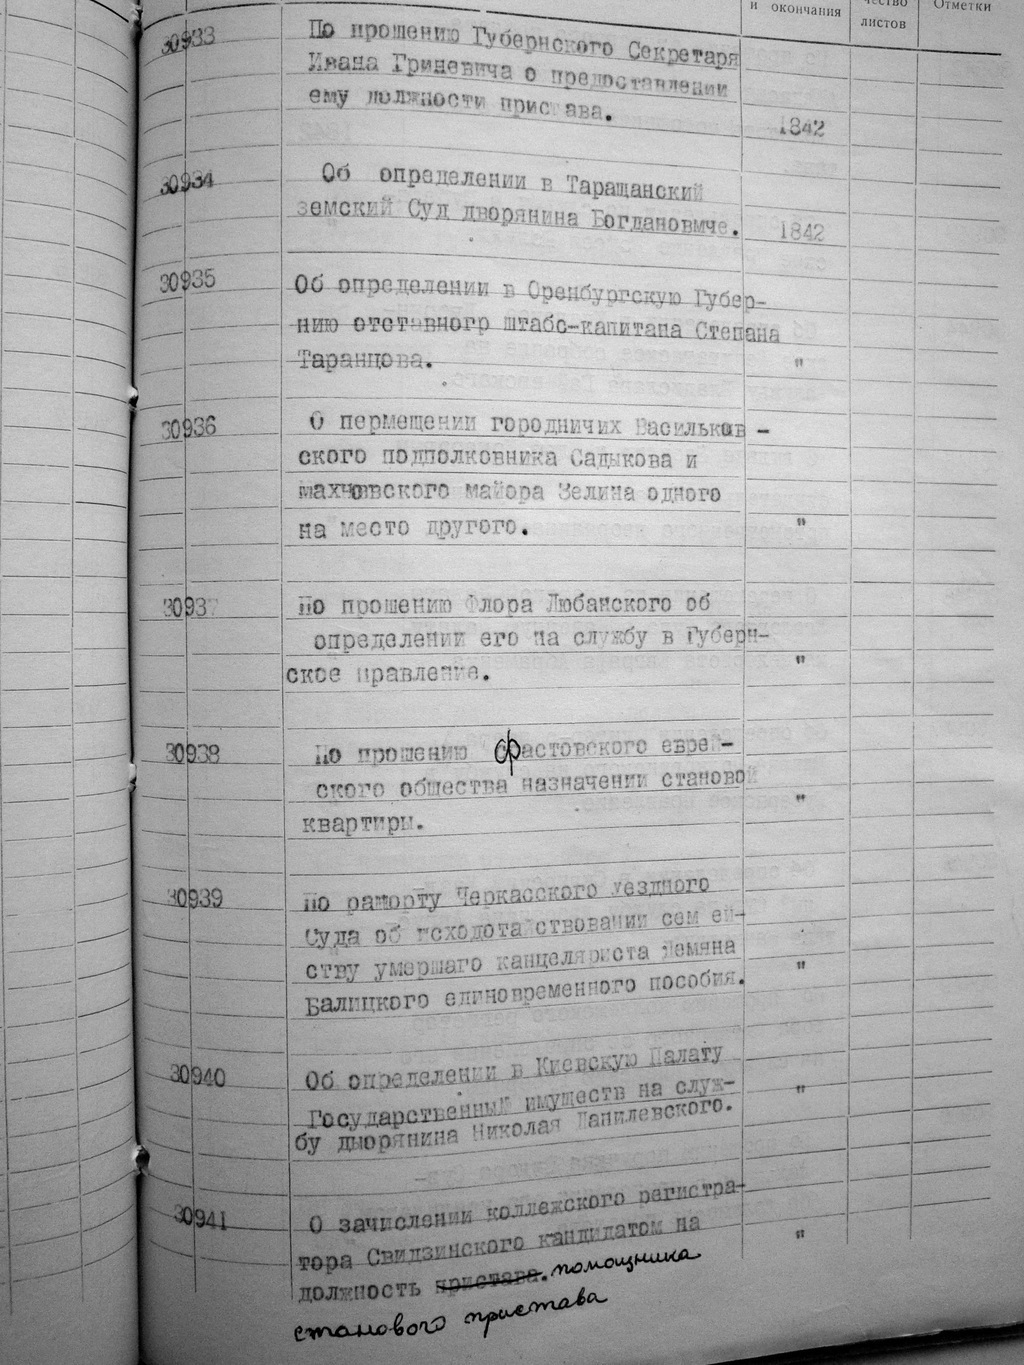 и окончания
чество
листов
Отметки
30933
По прошению Губернского Секретаря
Ивана Гриневича о предоставлении
ему должности пристава.
1842
30934
Об определении в Таращанский
земский Суд дворянина Богдановмче.
1842
30935
Об определении в Оренбургскую Губер-
нию отставногр штабс-капитана Степана
Таранцова.
"
30936
О пермещении городничих Васильков-
ского подполковника Садыкова и
махчовского майора Зелина одного
на место другого.
"
30937
По прошению Флора Любанского об
определении его на службу в Губерн-
ское правление.
"
30938
По прошению фастовского еврей-
ского общества назначении становой
квартиры.
"
30939
По рапорту Черкасского уездного
Суда об исходотайствовании сем ей-
ству умершаго канцеляриста Демяна
Балицкого единовременного пособия.
"
30940
Об определении в Киевскую Палату
Государственный имуществ на служ-
бу дворянина Николая Данилевского.
"
30941
О зачислении коллежского регистра-
тора Свидзинского кандидатом на
должность пристава. помощника
станового пристава
"